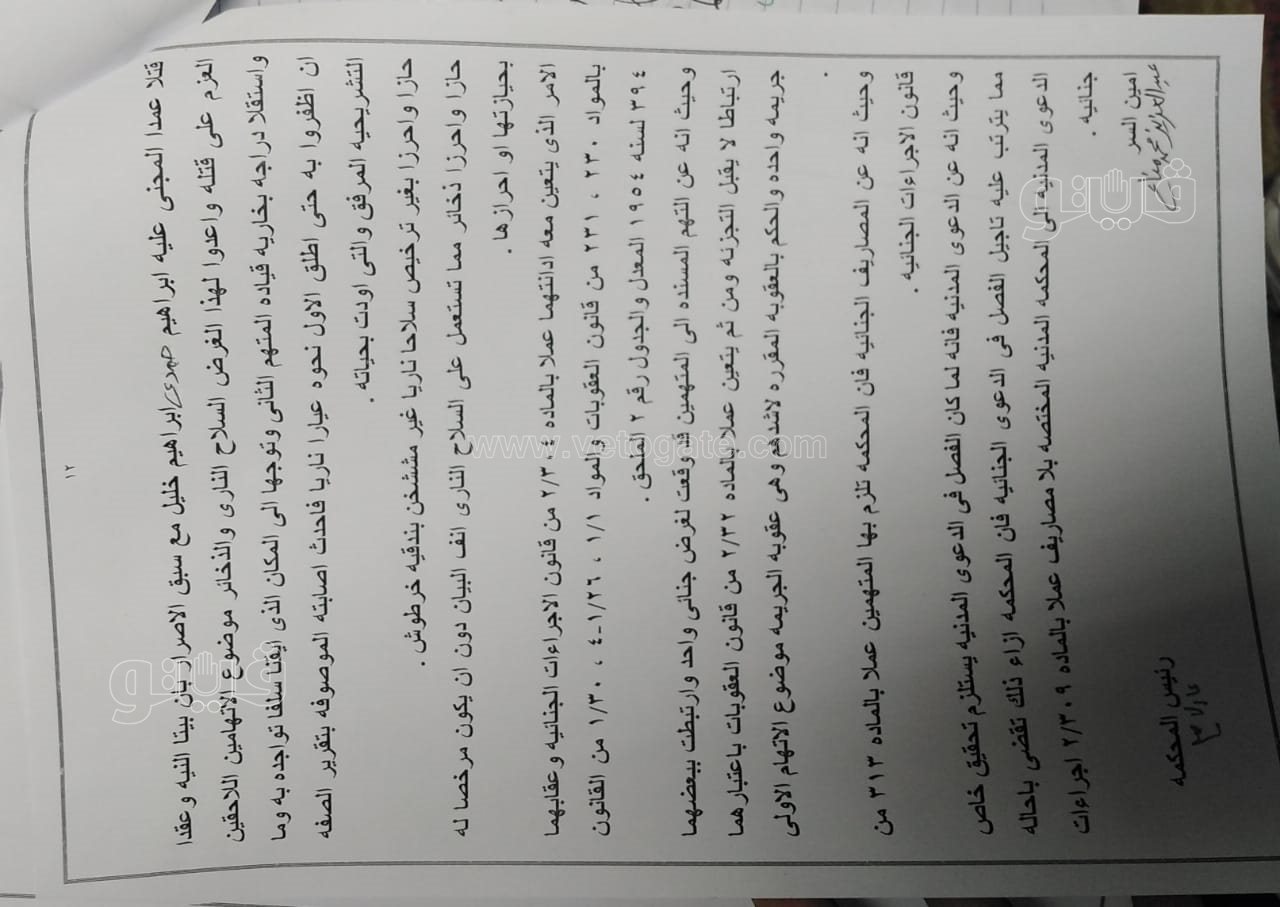 ١٢
قتلا عمدا المجنى عليه ابراهيم صبرى ابراهيم خليل مع سبق الاصرار بان بيتا النيه وعقدا
العزم على قتله واعدوا لهذا الغرض السلاح النارى والذخائر موضوع الاتهامين اللاحقين
واستقلا دراجه بخاريه قياده المتهم الثانى وتوجها الى المكان الذى ايقنا سلفا تواجده به وما
ان اظفروا به حتى اطلق الاول نحوه عيارا ناريا فاحدث اصابته الموصوفه بتقرير الصفه
التشريحيه المرفق والتى اودت بحياته .
حازا واحرزا بغير ترخيص سلاحا ناريا غير مششخن بندقيه خرطوش .
حازا واحرزا ذخائر مما تستعمل على السلاح النارى انف البيان دون ان يكون مرخصا له
بحيازتها او احرازها .
الامر الذى يتعين معه ادانتهما عملا بالماده ٢/٣٠٤ من قانون الاجراءات الجنائيه وعقابهما
بالمواد ٢٣٠ ، ٢٣١ من قانون العقوبات والمواد ١/١ ، ١/٢٦-٤ ، ١/٣٠ من القانون
٣٩٤ لسنه ١٩٥٤ المعدل والجدول رقم ٢ الملحق .
وحيث انه عن التهم المسنده الى المتهمين قد وقعت لغرض جنائى واحد وارتبطت ببعضهما
ارتباطا لا يقبل التجزئه ومن ثم يتعين عملا بالماده ٢/٣٢ من قانون العقوبات باعتبارهما
جريمه واحده والحكم بالعقوبه المقرره لاشدهم وهى عقوبه الجريمه موضوع الاتهام الاولى
.
وحيث انه عن المصاريف الجنائيه فان المحكمه تلزم بها المتهمين عملا بالماده ٣١٣ من
قانون الاجراءات الجنائيه .
وحيث انه عن الدعوى المدنيه فانه لما كان الفصل فى الدعوى المدنيه يستلزم تحقيق خاص
مما يترتب عليه تاجيل الفصل فى الدعوى الجنائيه فان المحكمه ازاء ذلك تقضى باحاله
الدعوى المدنيه الى المحكمه المدنيه المختصه بلا مصاريف عملا بالماده ٢/٣٠٩ اجراءات
جنائيه .
امين السر
رئيس المحكمه
فيتو
www.vetogate.com
فيتو